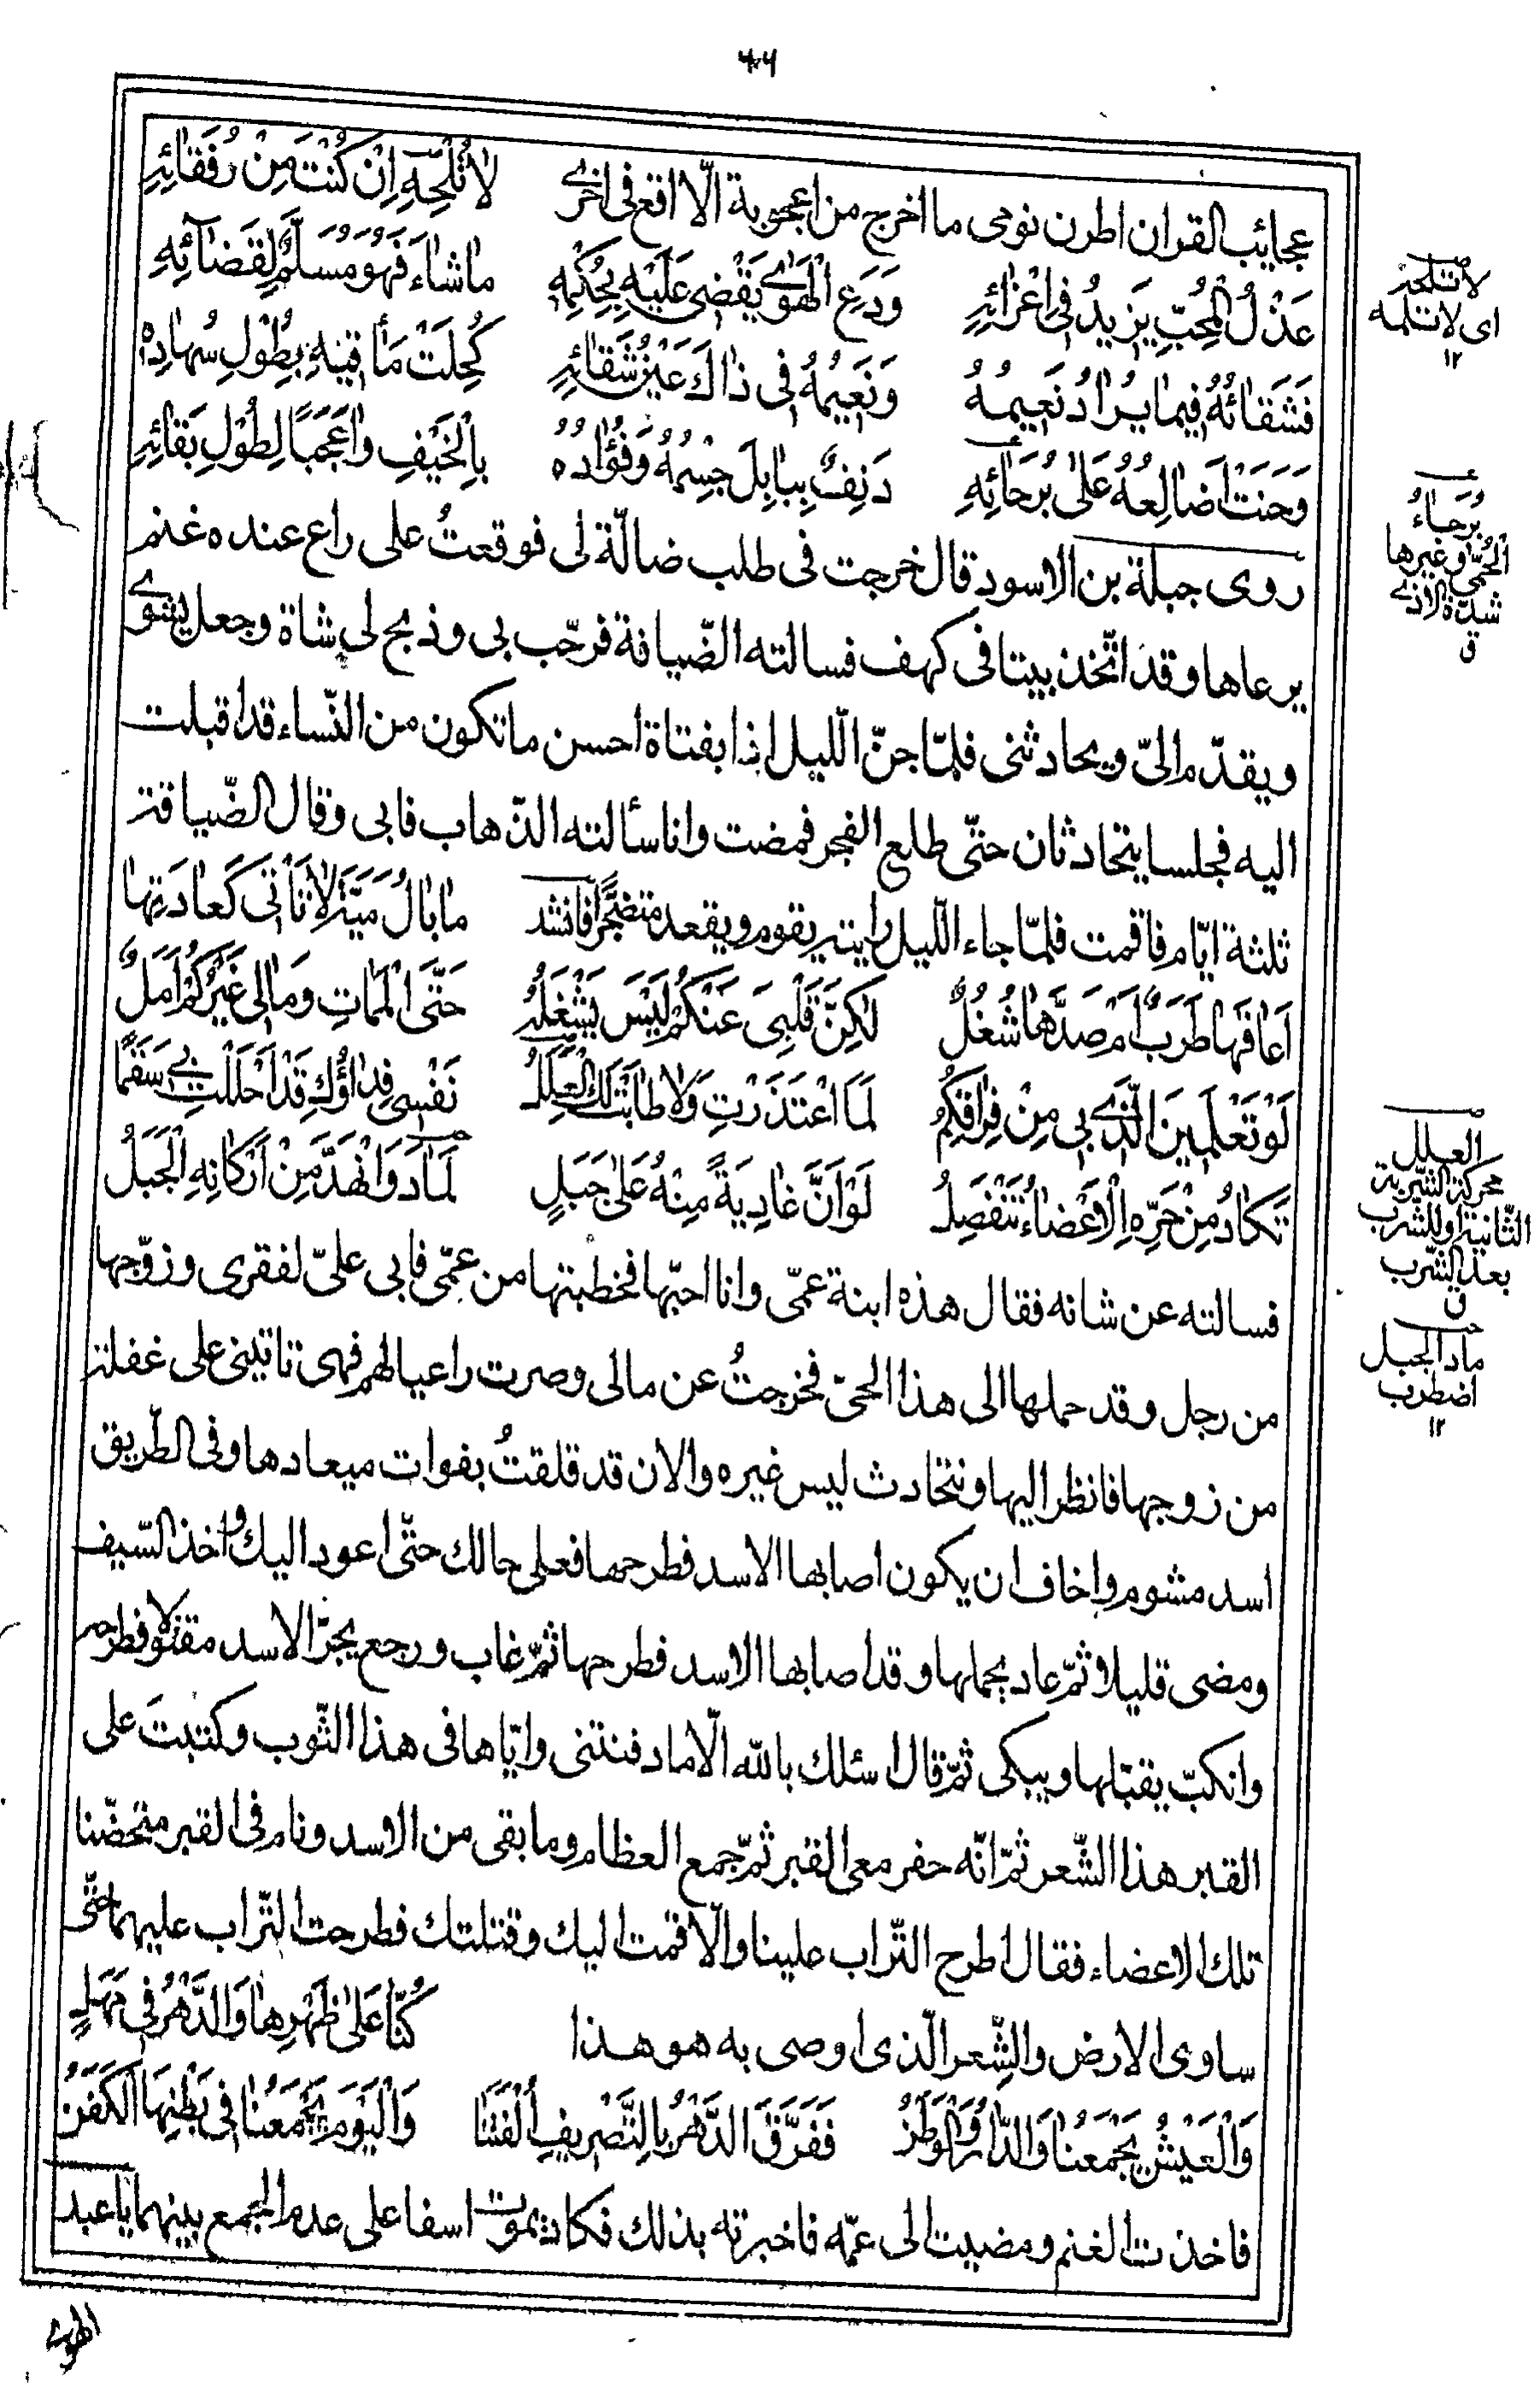 ٤٠٦
عجايب القران اطرن نومى ما اخرج من اعجوبة الّا اقع فى اخرى لا تُلْحِهِ اِنْ كُنْتَ مِنْ رُفَقٰائِهِ
عَذْلُ الْمُحِبِّ يَزيدُ فى اِغْرٰائِهِ وَدَعِ الْهَوٰى يَقْضى عَلَيْهِ بِحُكْمِهِ مٰا شٰاءَ فَهُوَ مُسَلِّمٌ لِقَضٰائِهِ
فَشَقٰائُهُ فيمٰا يُرٰادُ نَعيمُهُ وَنَعيمُهُ فى ذٰاكَ عَيْنُ شَقٰائِهِ كُحِلَتْ مَأٰقيهِ بِطُولِ سُهٰادِهِ
وَحَنَتْ اَضٰالِعُهُ عَلٰى بُرَحٰائِهِ دَنِفٌ بِبٰابِلَ جِسْمُهُ وَفُؤٰادُهُ بِالْخَيْفِ وٰاعَجَبًا لِطُولِ بَقٰائِهِ
روى جبلة بن الاسود قال خرجت فى طلب ضالّة لى فوقعتُ على راع عنده غنم
يرعاها وقد اتّخذ بيتا فى كهف فسالته الضّيافة فرحّب بى وذبح لى شاة وجعل يشوى
ويقدّم الىّ ويحادثنى فلمّا جنّ اللّيل اذا بفتاة احسن ما تكون من النّساء قد اقبلت
اليه فجلسا يتحادثان حتّى طلع الفجر فمضت وانا سألته الذّهاب فابى وقال الضّيافة
ثلثة ايّام فاقمت فلمّا جاء اللّيل رايته يقوم ويقعد متضجّرًا فانشد مٰا بٰالُ مَيَّةَ لٰا تَأْتى كَعٰادَتِهٰا
اَعٰاقَهٰا طَرَبٌ اَمْ صَدَّهٰا شُغُلٌ لٰكِنَّ قَلْبِىَ عَنْكُمْ لَيْسَ يَشْغَلُهُ حَتَّى الْمَمٰاتِ وَمٰالى غَيْرَكُمْ اَمَلٌ
لَوْ تَعْلَمينَ الَّذى بى مِنْ فِرٰاقِكُمُ لَمَا اعْتَذَرْتِ وَلٰا طٰابَتْ لَكِ الْعِلَلُ نَفْسى فِدٰاؤُكِ قَدْ اَحْلَلْتِ بى سَقَمًا
تَكٰادُ مِنْ حَرِّهِ الْاَعْضٰاءُ تَنْفَصِلُ لَوْ اَنَّ غٰادِيَةً مِنْهُ عَلٰى جَبَلٍ لَمٰادَ وَانْهَدَّ مِنْ اَرْكٰانِهِ الْجَبَلُ
فسالته عن شانه فقال هذه ابنة عمّى وانا احبّها فخطبتها من عمّى فابى علىّ لفقرى وزوّجها
من رجل وقد حملها الى هذا الحىّ فخرجتُ عن مالى وصرت راعيا لهم فهى تاتينى على غفلة
من زوجها فانظر اليها ونتحادث ليس غيره والان قد قلقتُ بفوات ميعادها وفى الطّريق
اسد مشوم واخاف ان يكون اصابها الاسد فطرحها فعلى حالك حتّى اعود اليك واخذ السّيف
ومضى قليلا ثمّ عاد يحملها وقد اصابها الاسد فطرحها ثمّ غاب ورجع يجرّ الاسد مقتولا فطرحه
وانكبّ يقبّلها ويبكى ثمّ قال اسئلك بالله الّا ما دفنتنى وايّاها فى هذا الثّوب وكتبتَ على
القبر هذا الشّعر ثمّ انّه حفر معى القبر ثمّ جمع العظام وما بقى من الاسد ونام فى القبر متحضّنا
تلك الاعضاء فقال اطرح التّراب علينا والّا قمت اليك وقتلتك فطرحت التّراب عليهما حتّى
ساوى الارض والشّعر الّذى اوصى به هو هذا كُنّٰا عَلٰى ظَهْرِهٰا وَالدَّهْرُ فى مَهَلٍ
وَالْعَيْشُ يَجْمَعُنٰا وَالدّٰارُ وَالْوَطَنُ فَفَرَّقَ الدَّهْرُ بِالتَّصْريفِ اُلْفَتَنٰا وَالْيَوْمَ يَجْمَعُنٰا فى بَطْنِهَا الْكَفَنُ
فاخذت الغنم ومضيت الى عمّه فاخبرته بذلك فكاد يموت اسفا على عدم الجمع بينهما يا عبد
لا تلحه
اى لا تلمه
١٢
بُرَحاءُ
الحُمّى وغيرها
شدّة الاذى
ق
العلل
محركة الشربة
الثّانية او الشرب
بعد الشّرب
ق
ماد الجبل
اضطرب
١٢
الهوى